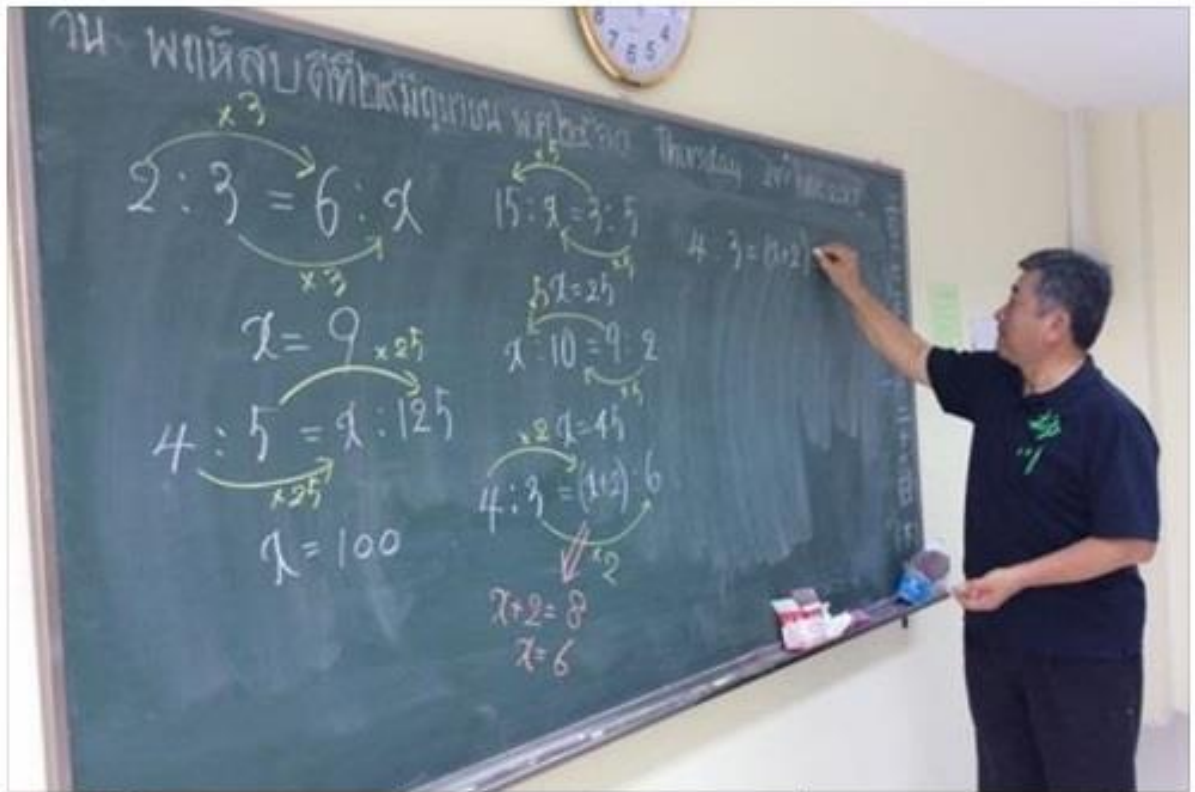 วัน พฤหัสบดีที่๒๙มิถุนายน พ.ศ.๒๕๖๐ Thursday 29th
×3
2 : 3 = 6 : x
×3
x = 9
×25
4 : 5 = x : 125
×25
x = 100
×5
15 : x = 3 : 5
×5
x = 25
5
x : 10 = 9 : 2
×5
×2 x = 45
4 : 3 = (x+2) : 6
×2
x+2 = 8
x = 6
4 : 3 = (x+2)
8 7 6 5 4